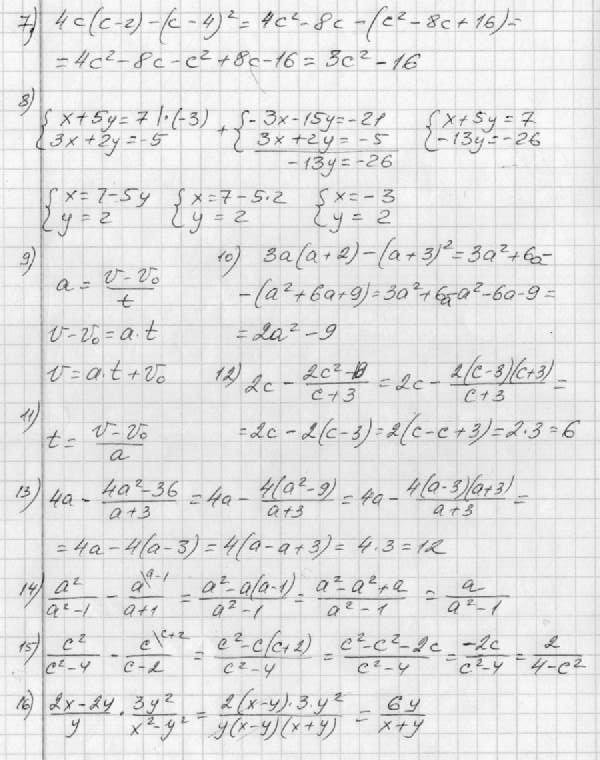 7) 4c(c-2)-(c-4)² = 4c²-8c-(c²-8c+16)=
= 4c²-8c-c²+8c-16 = 3c²-16
8) { x+5y=7 |·(-3) + { -3x-15y=-21 { x+5y=7
3x+2y=-5 3x+2y=-5 -13y=-26
-13y=-26
{ x=7-5y { x=7-5·2 { x=-3
y=2 y=2 y=2
9) a = (v-v₀)/t
v-v₀=a·t
v=a·t+v₀
10) 3a(a+2)-(a+3)²=3a²+6a-
-(a²+6a+9)=3a²+6a-a²-6a-9=
=2a²-9
11) t = (v-v₀)/a
12) 2c - (2c²-18)/(c+3) = 2c - 2(c-3)(c+3)/(c+3) =
=2c-2(c-3)=2(c-c+3)=2·3=6
13) 4a - (4a²-36)/(a+3) = 4a - 4(a²-9)/(a+3) = 4a - 4(a-3)(a+3)/(a+3) =
= 4a-4(a-3)=4(a-a+3)= 4·3=12
14) a²/(a²-1) - a\ᵃ⁻¹/(a+1) = (a²-a(a-1))/(a²-1) = (a²-a²+a)/(a²-1) = a/(a²-1)
15) c²/(c²-4) - c\ᶜ⁺²/(c-2) = (c²-c(c+2))/(c²-4) = (c²-c²-2c)/(c²-4) = -2c/(c²-4) = 2/(4-c²)
16) (2x-2y)/y · 3y²/(x²-y²) = 2(x-y)·3·y²/(y(x-y)(x+y)) = 6y/(x+y)